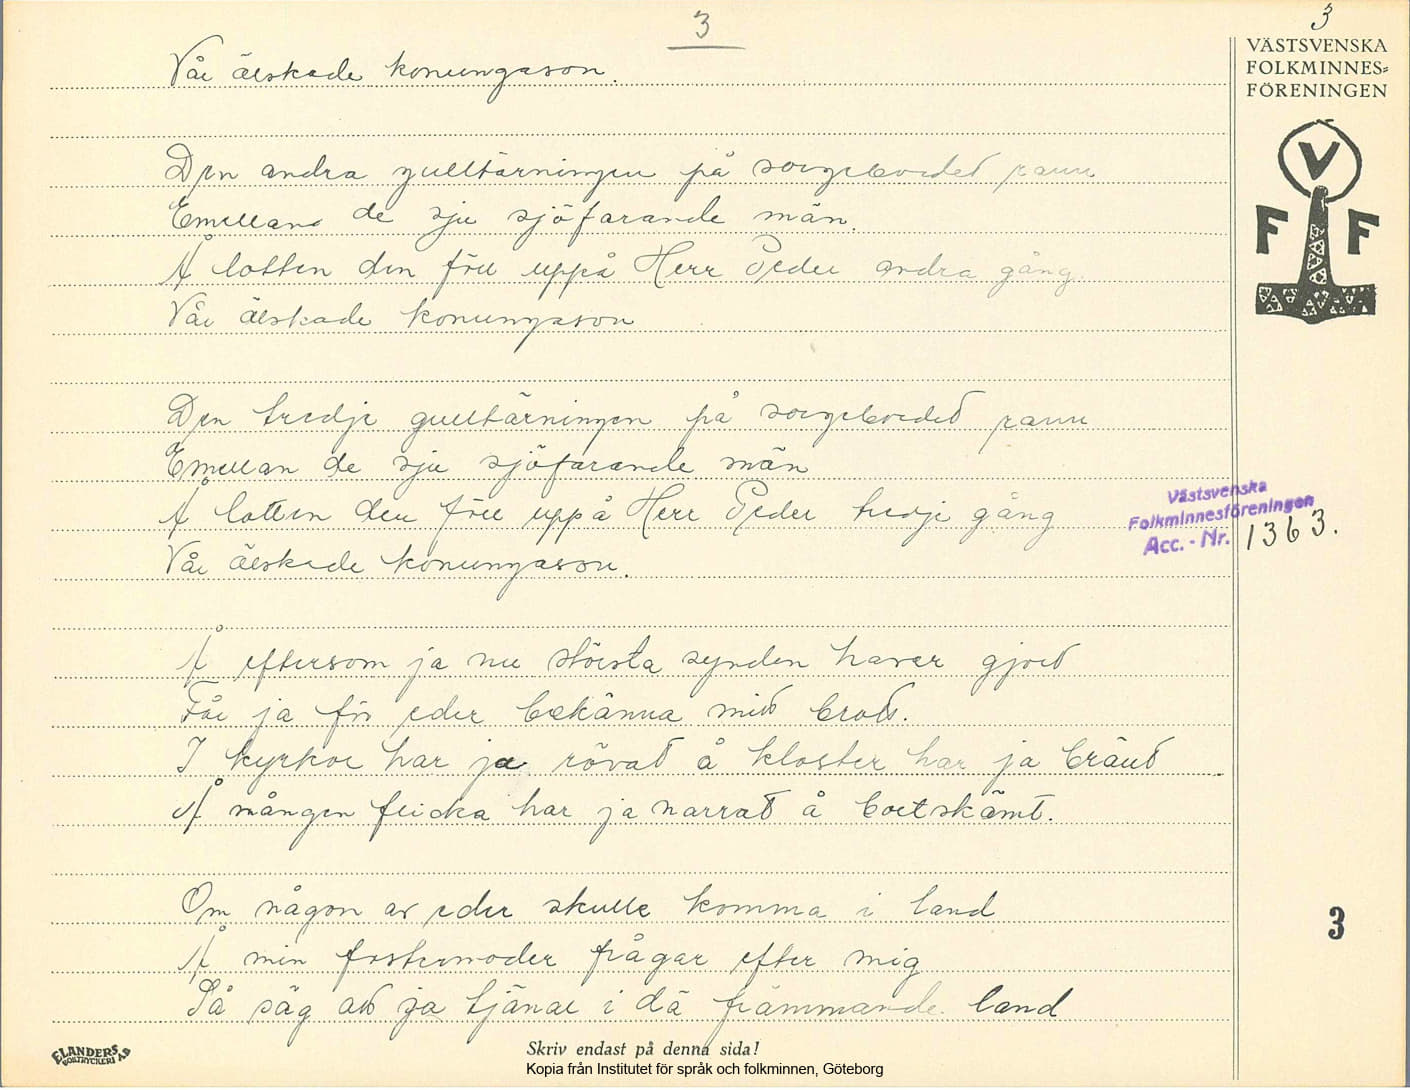 3
3
VÄSTSVENSKA
FOLKMINNES=
FÖRENINGEN
V
F F
Vår älskade konungason.
Den andra gulltärningen på sorgebordet rann
Emellans de sju sjöfarande män.
Å lotten den föll uppå Herr Peder andra gång.
Vår älskade konungason
Den tredje gulltärningen på sorgebordet rann
Emellan de sju sjöfarande män
Å lotten den föll uppå Herr Peder tredje gång
Vår älskade konungason.
Västsvenska
Folkminnesföreningen
Acc. - Nr. 1363.
Å eftersom ja nu största synden haver gjort
Får ja för eder bekänna mitt brott.
I kyrkor har ja rövat å kloster har ja bränt
Å mången flicka har ja narrat å bortskämt.
Om någon av eder skulle komma i land
Å min fostermoder frågar efter mig
Så säg att ja tjänar i dä främmande land
3
ELANDERS
BOKTRYCKERI AB
Skriv endast på denna sida!
Kopia från Institutet för språk och folkminnen, Göteborg